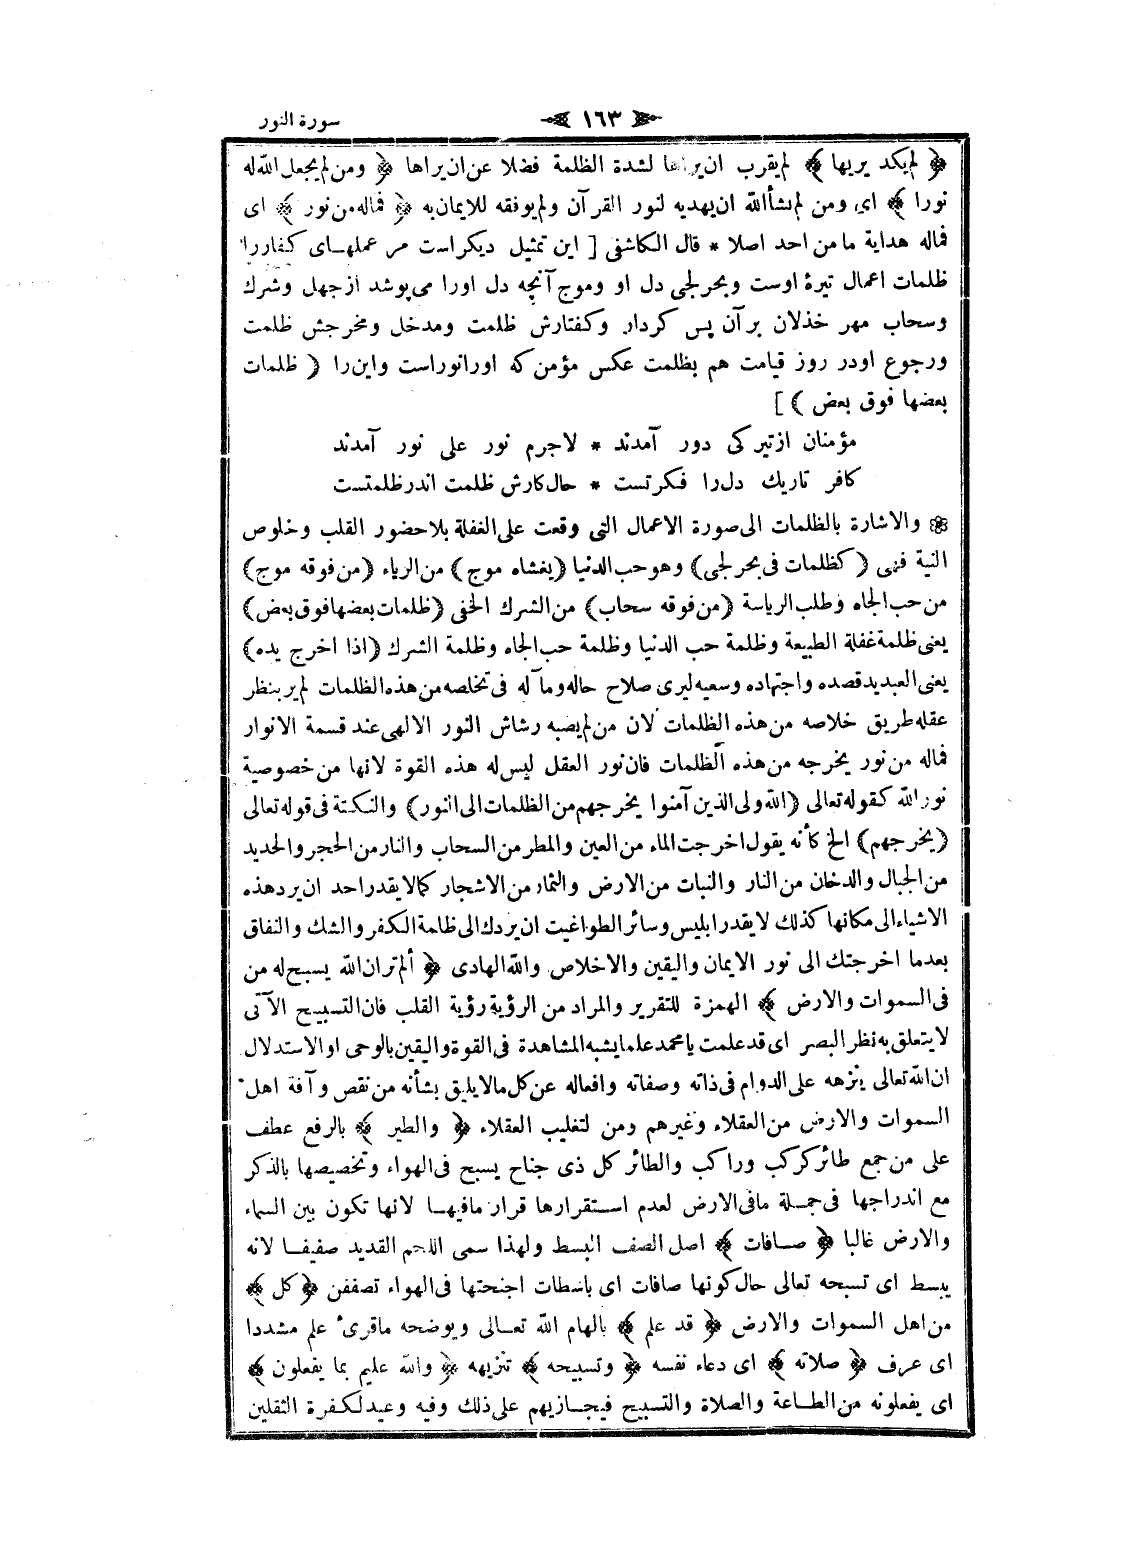 سورة النور
١٦٣
﴿ لم يكد يريها ﴾ لم يقرب ان يراها لشدة الظلمة فضلا عن ان يراها ﴿ ومن لم يجعل الله له
نورا ﴾ اى ومن لم يشأ الله ان يهديه لنور القرآن ولم يوفقه للايمان به ﴿ فماله من نور ﴾ اى
فماله هداية ما من احد اصلا * قال الكاشفى [ اين تمثيل ديكراست مر عملهاى كفاررا
ظلمات اعمال تيرۀ اوست وبحر لجى دل او وموج آنچه دل اورا مى پوشد ازجهل وشرك
وسحاب مهر خذلان بر آن پس كردار وكفتارش ظلمت ومدخل ومخرجش ظلمت
ورجوع اودر روز قيامت هم بظلمت عكس مؤمن كه اورانوراست واين را ( ظلمات
بعضها فوق بعض ) ]
مؤمنان ازتيركى دور آمدند * لاجرم نور على نور آمدند
كافر تاريك دل را فكرتست * حال كارش ظلمت اندرظلمتست
۞ والاشارة بالظلمات الى صورة الاعمال التى وقعت على الغفلة بلاحضور القلب وخلوص
النية فهى (كظلمات فى بحر لجى) وهو حب الدنيا (يغشاه موج) من الرياء (من فوقه موج)
من حب الجاه وطلب الرياسة (من فوقه سحاب) من الشرك الخفى (ظلمات بعضها فوق بعض)
يعنى ظلمة غفلة الطبيعة وظلمة حب الدنيا وظلمة حب الجاه وظلمة الشرك (اذا اخرج يده)
يعنى العبد يد قصده واجتهاده وسعيه ليرى صلاح حاله ومآله فى تخلصه من هذه الظلمات لم ير بنظر
عقله طريق خلاصه من هذه الظلمات لان من لم يصبه رشاش النور الالهى عند قسمة الانوار
فماله من نور يخرجه من هذه الظلمات فان نور العقل ليس له هذه القوة لانها من خصوصية
نور الله كقوله تعالى (الله ولى الذين آمنوا يخرجهم من الظلمات الى النور) والنكتة فى قوله تعالى
(يخرجهم) الخ كأنه يقول اخرجت الماء من العين والمطر من السحاب والنار من الحجر والحديد
من الجبال والدخان من النار والنبات من الارض والثمار من الاشجار كما لا يقدر احد ان يرد هذه
الاشياء الى مكانها كذلك لا يقدر ابليس وسائر الطواغيت ان يردك الى ظلمة الكفر والشك والنفاق
بعدما اخرجتك الى نور الايمان واليقين والاخلاص والله الهادى ﴿ ألم تر ان الله يسبح له من
فى السموات والارض ﴾ الهمزة للتقرير والمراد من الرؤية رؤية القلب فان التسبيح الآتى
لا يتعلق به نظر البصر اى قد علمت يا محمد علما يشبه المشاهدة فى القوة واليقين بالوحى او الاستدلال
ان الله تعالى ينزهه على الدوام فى ذاته وصفاته وافعاله عن كل مالا يليق بشأنه من نقص وآفة اهل
السموات والارض من العقلاء وغيرهم ومن لتغليب العقلاء ﴿ والطير ﴾ بالرفع عطف
على من جمع طائر كركب وراكب والطائر كل ذى جناح يسبح فى الهواء وتخصيصها بالذكر
مع اندراجها فى جملة مافى الارض لعدم استقرارها قرار مافيها لانها تكون بين السماء
والارض غالبا ﴿ صافات ﴾ اصل الصف البسط ولهذا سمى اللحم القديد صفيفا لانه
يبسط اى تسبحه تعالى حال كونها صافات اى باسطات اجنحتها فى الهواء تصففن ﴿ كل ﴾
من اهل السموات والارض ﴿ قد علم ﴾ بالهام الله تعالى ويوضحه ماقرئ علم مشددا
اى عرف ﴿ صلاته ﴾ اى دعاء نفسه ﴿ وتسبيحه ﴾ تنزيهه ﴿ والله عليم بما يفعلون ﴾
اى يفعلونه من الطاعة والصلاة والتسبيح فيجازيهم على ذلك وفيه وعيد لكفرة الثقلين